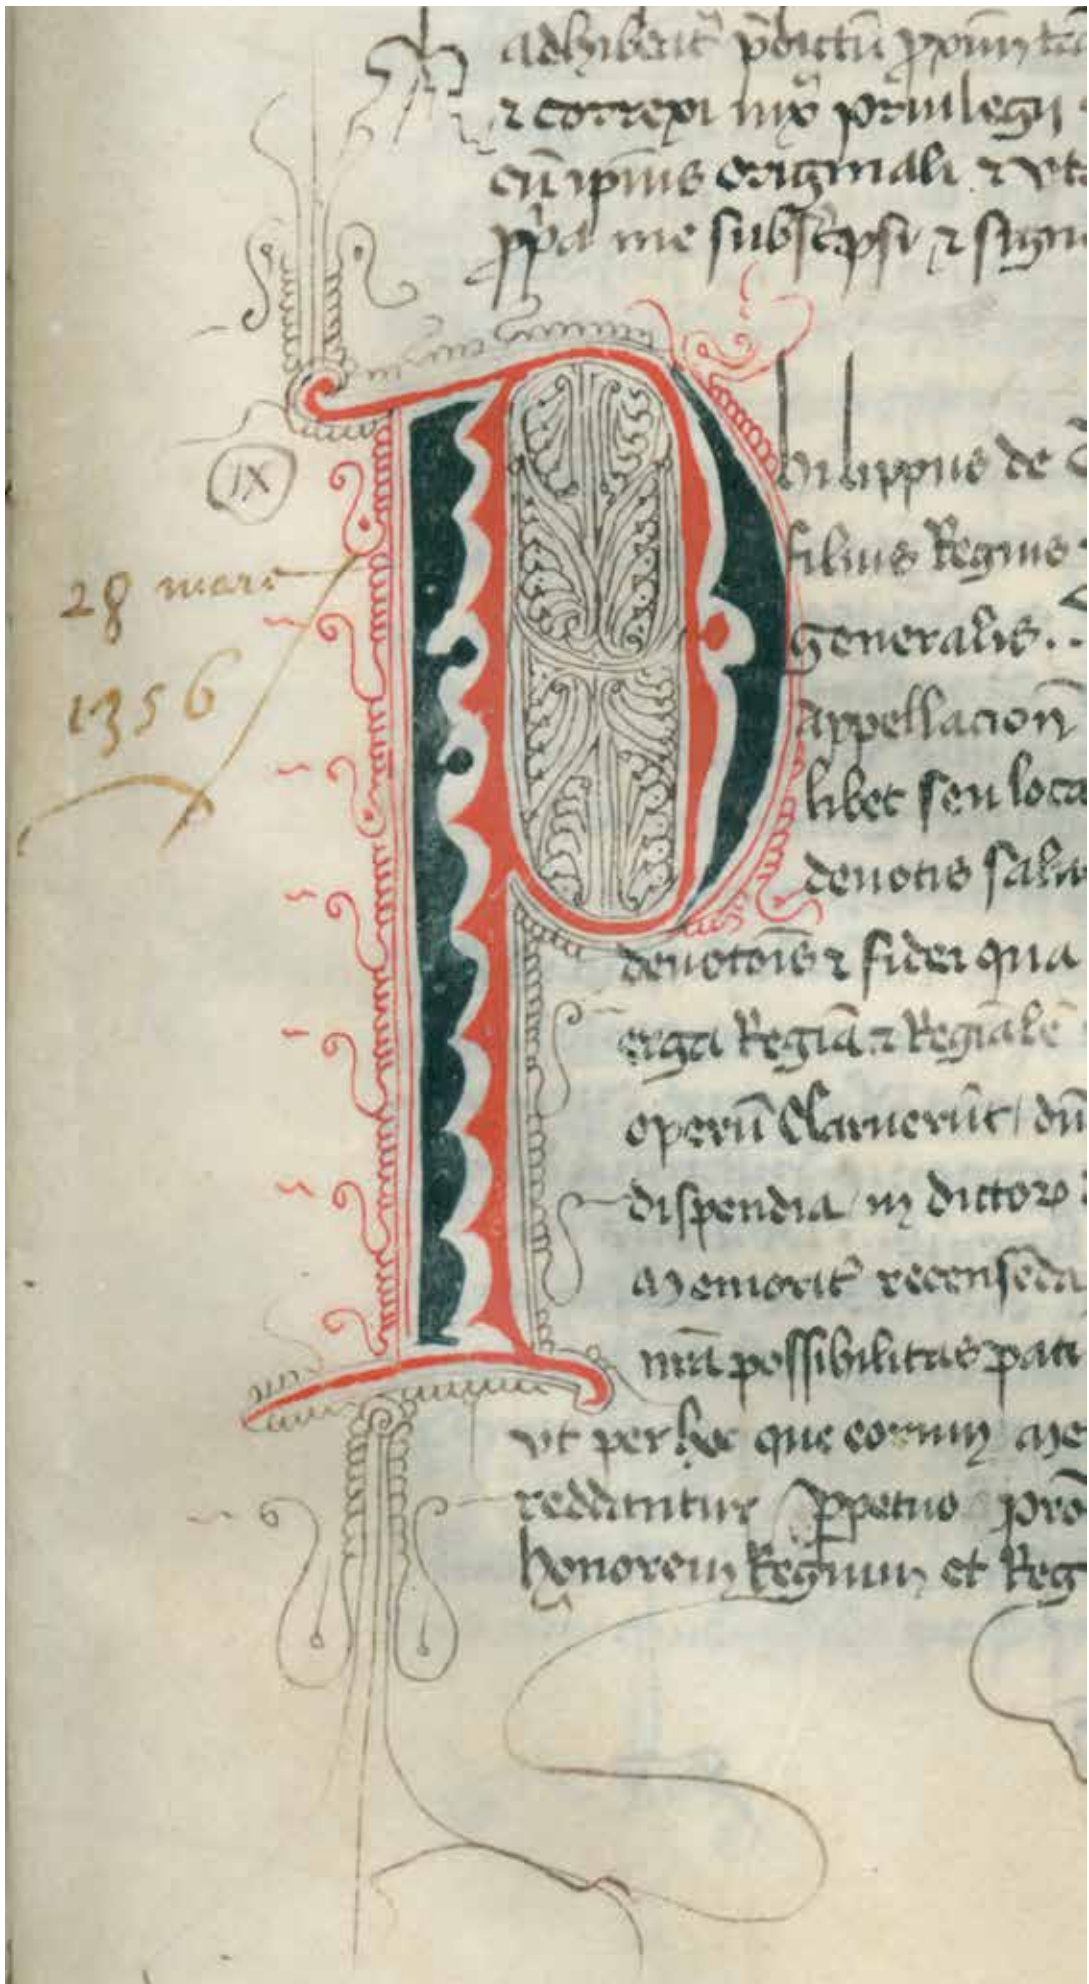 adhibeatˀ p̄dictū
⁊ correxi priuilegij
cū ip̄ius originali ⁊
ppͣa me subsc̄psi ⁊ sign
IX
28 mars
1356
Philippus de
filius Regius
generalis.
appellacion̄
libet seu loca
deuotis salu
deuotōis ⁊ fidei qua
erga Regiā ⁊ Regiālē
operū claruerūt / dū
dispendia / in dictoꝝ
memoritˀ recenseda
nr̄a possibilitas pati
vt per hec que eorum me
reddantur ꝑpetuo
honorem Regium et Reg